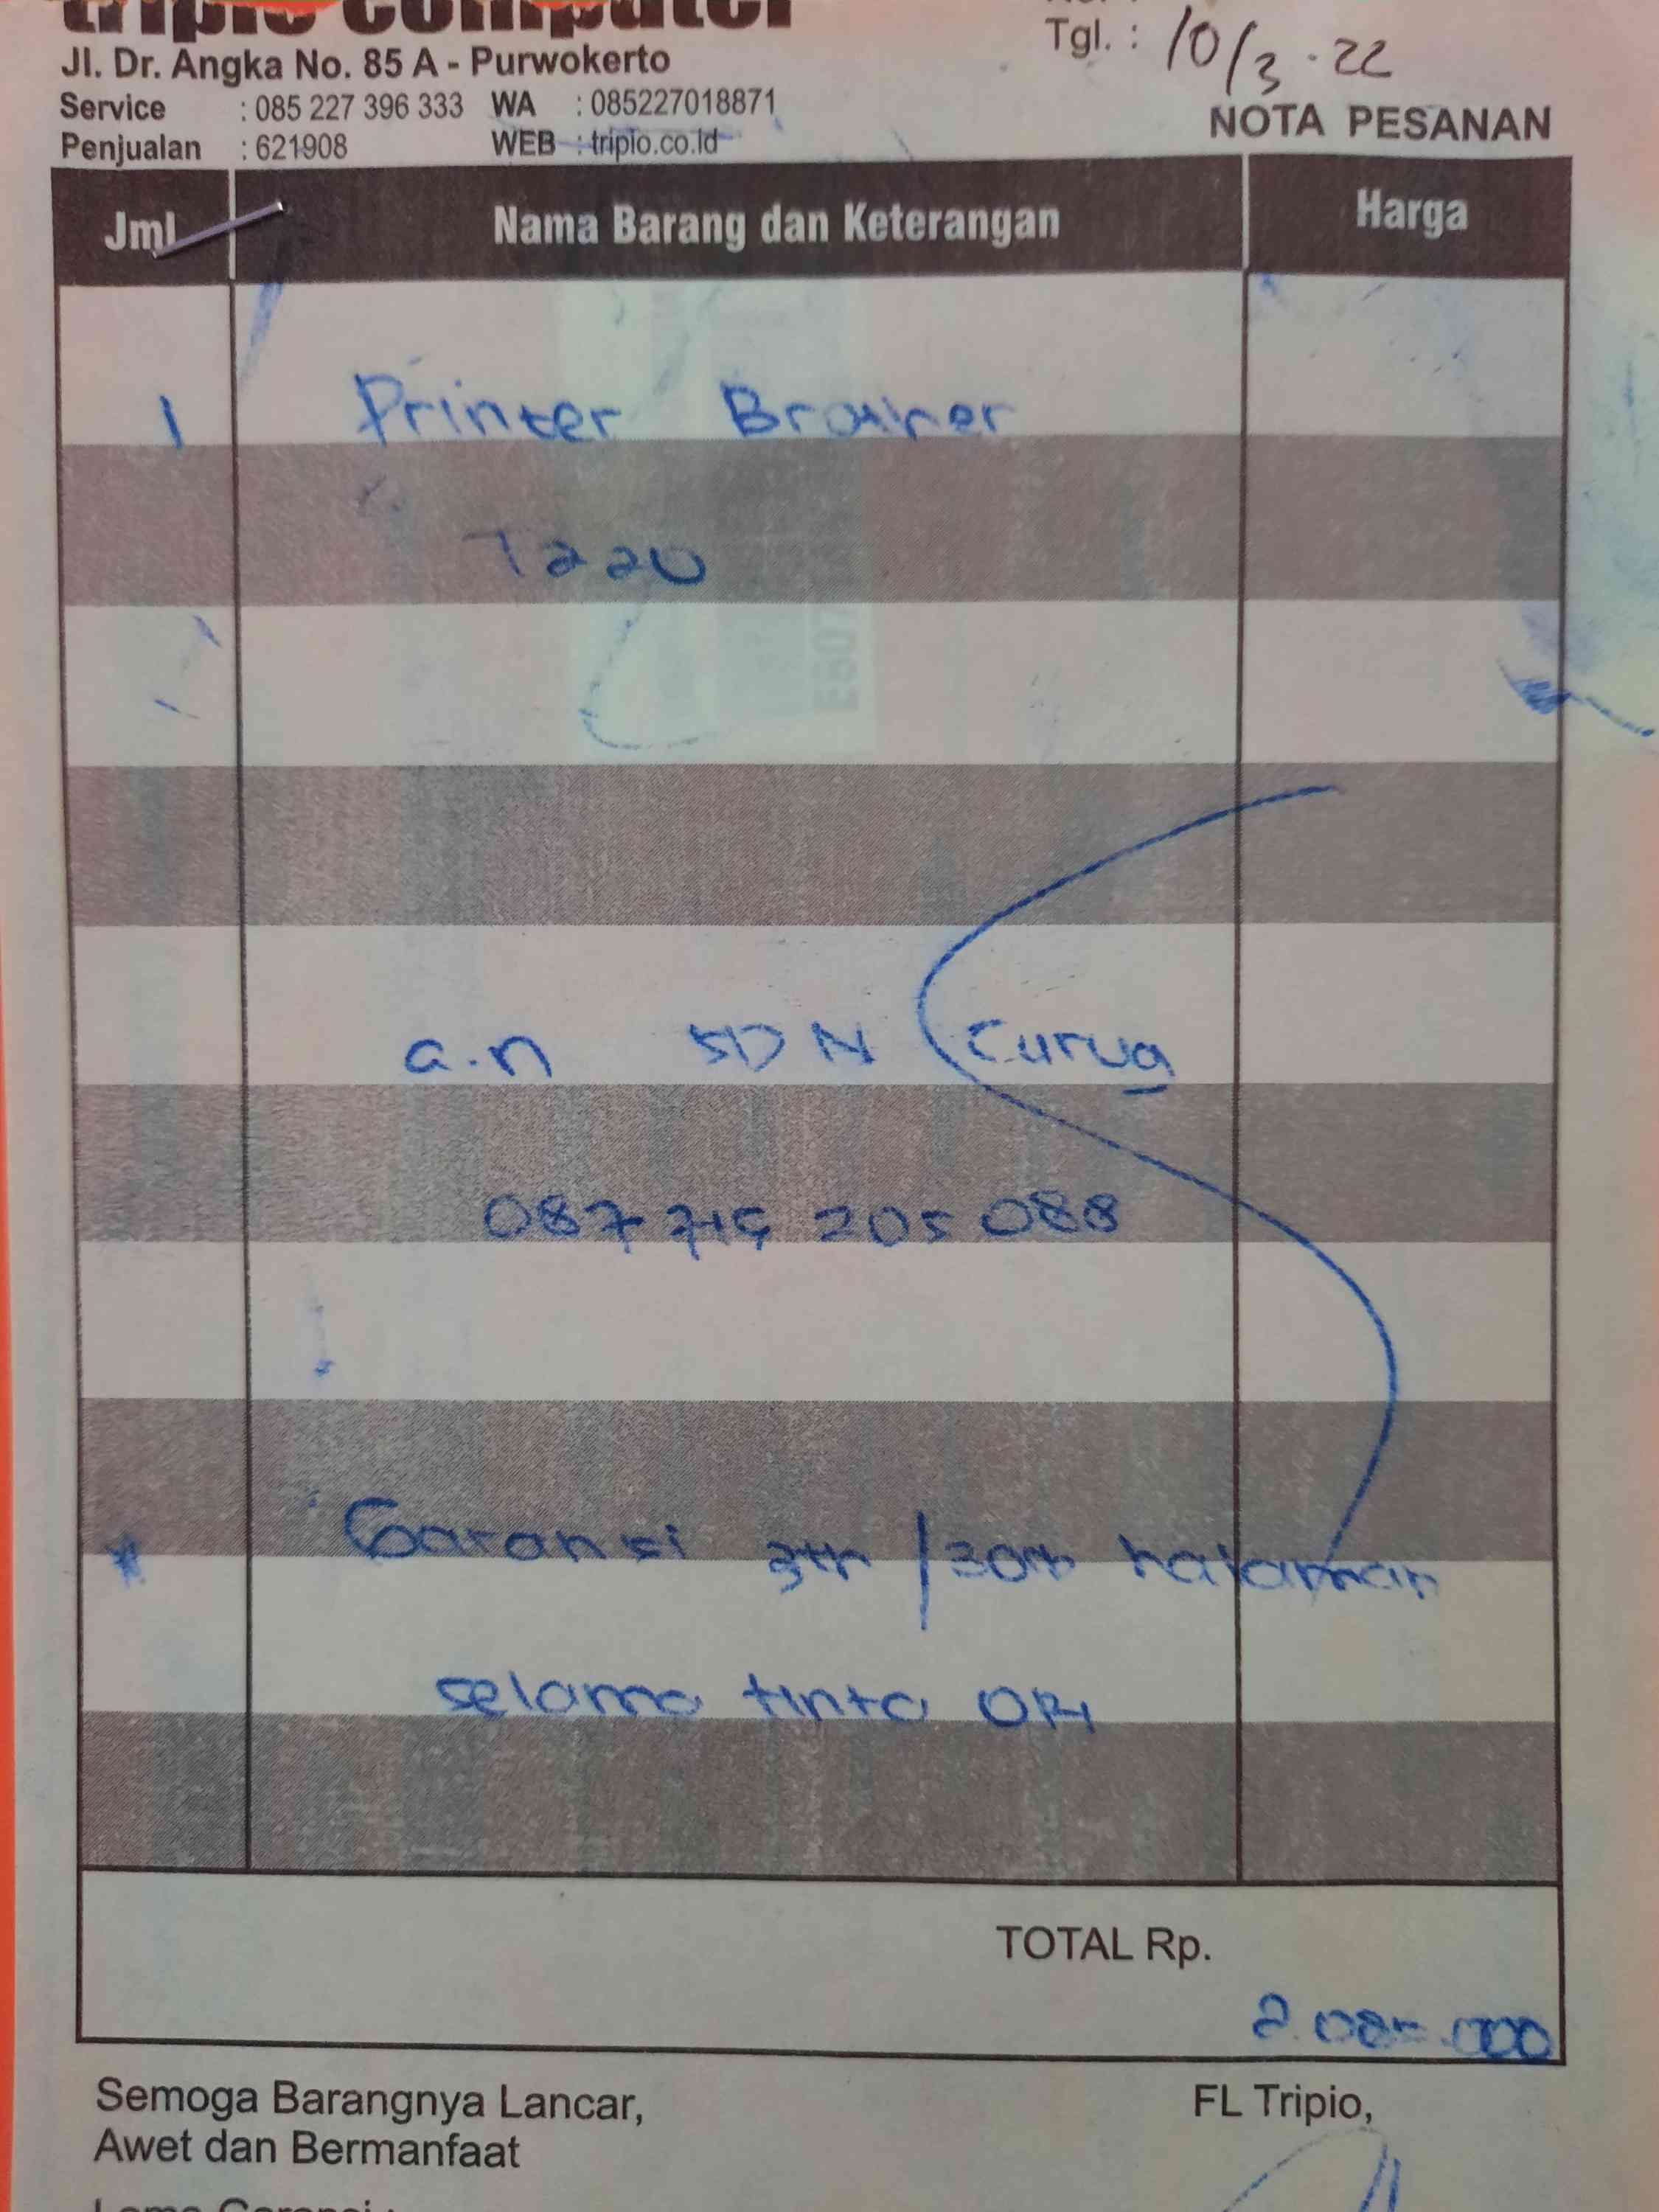 tripio computer
Tgl. : 10/3.22
Jl. Dr. Angka No. 85 A - Purwokerto
Service : 085 227 396 333 WA : 085227018871
Penjualan : 621908 WEB : tripio.co.id
NOTA PESANAN
Jml Nama Barang dan Keterangan Harga
1 Printer Brother
T220
a.n SDN Curug
205 088
* Garansi 3th / 30rb halaman
selama tinta ORI
TOTAL Rp.
2.085.000
Semoga Barangnya Lancar, FL Tripio,
Awet dan Bermanfaat
Lama Garansi :